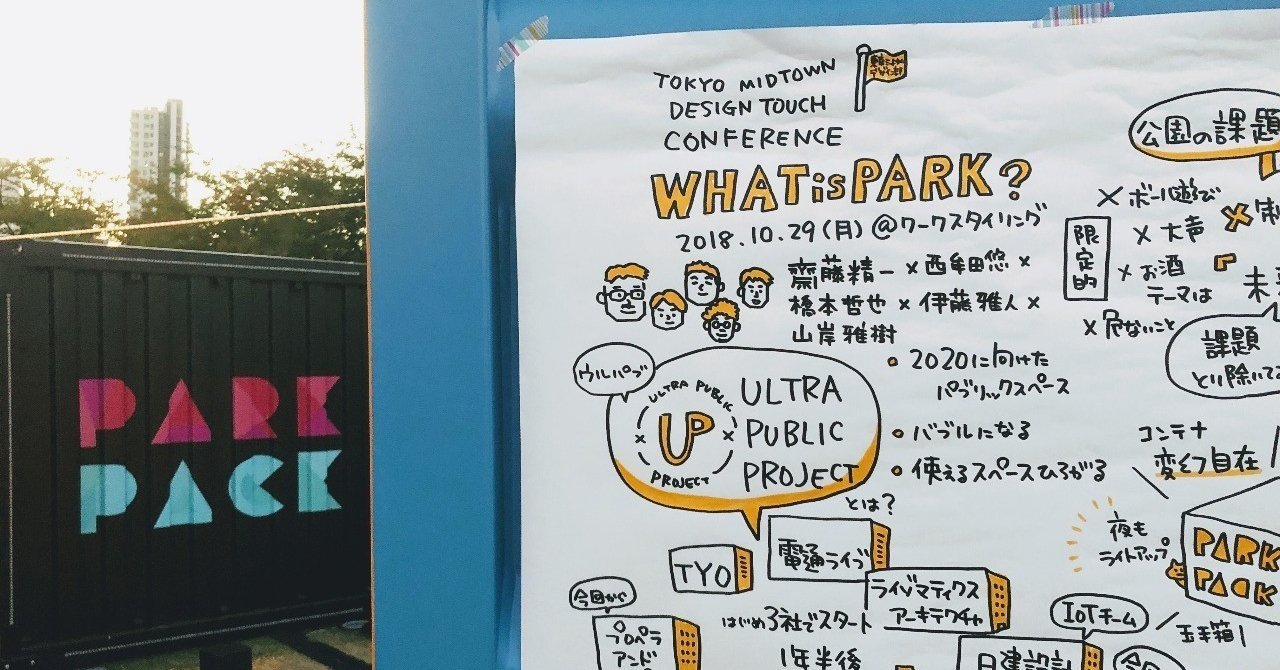 PARK
PACK
TOKYO MIDTOWN
DESIGN TOUCH
CONFERENCE
WHAT is PARK?
2018.10.29(月)@ワークスタイリング
齋藤精一×西牟田悠×
橋本哲也×伊藤雅人×
山岸雅樹
ウルパブ
ULTRA PUBLIC
UP
PROJECT
ULTRA
PUBLIC
PROJECT
とは?
・2020に向けた
パブリックスペース
・バブルになる
・使えるスペースひろがる
TYO
電通ライブ
ライゾマティクス
アーキテクチャ
はじめ3社でスタート
今回から
プロペラ
アンド
1年半後
日建設計
IoTチーム
公園の課題
限定的
×ボール遊び
×大声
×お酒
テーマは
×危ないこと
課題
とり除いて
コンテナ
変幻自在
夜も
ライトアップ
PARK
PACK
玉手箱!